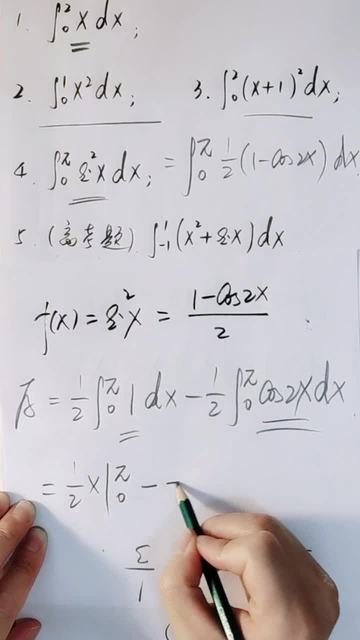 1. ∫₀² x dx;
2. ∫₀¹ x² dx; 3. ∫₀² (x+1)² dx;
4. ∫₀^π sin²x dx; = ∫₀^π 1/2 (1-cos2x) dx
5. (高考题) ∫₋₁¹ (x²+sin x) dx
f(x) = sin²x = (1-cos2x)/2
原 = 1/2 ∫₀^π 1 dx - 1/2 ∫₀^π cos2x dx
= 1/2 x |₀^π - -